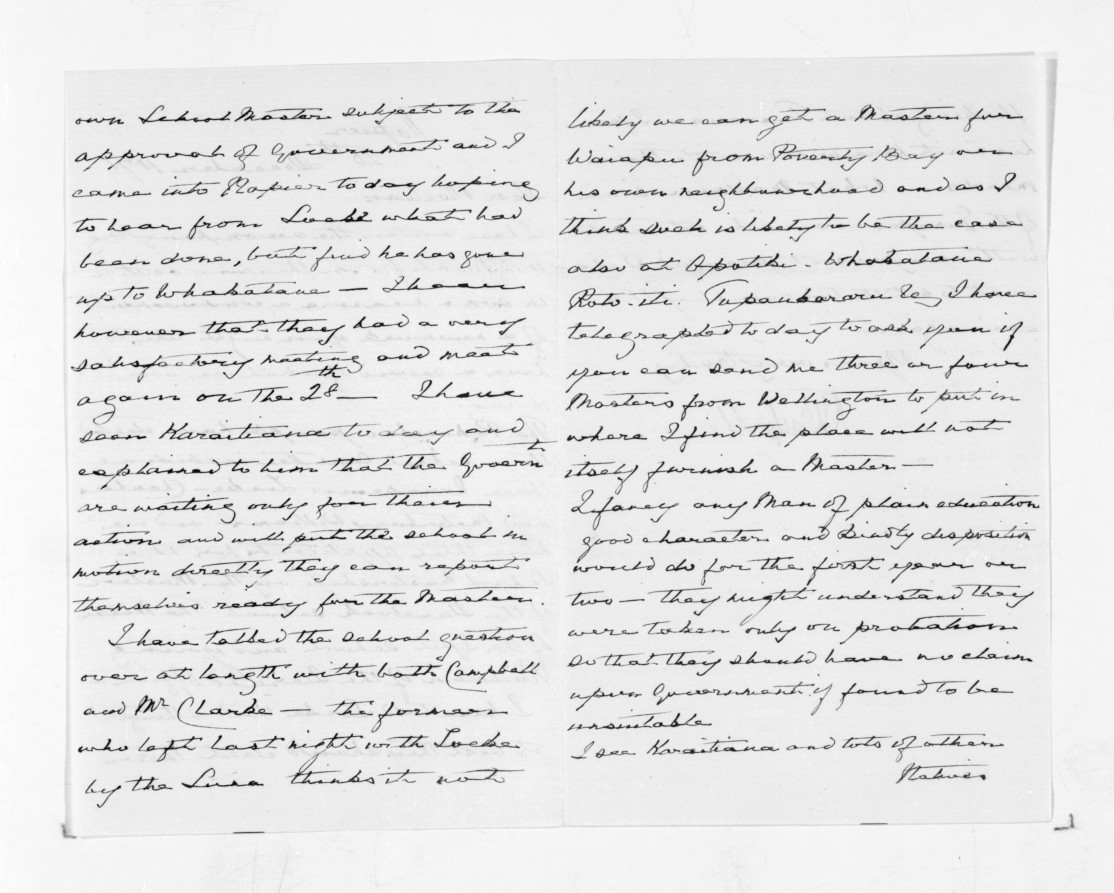 own School Master subject to the
approval of Government and I
came into Napier today hoping
to hear from Locke what had
been done, but find he has gone
up to Whakatane — I hear
however that they had a very
satisfactory meeting and meet
again on the 28th — I have
seen Karaitiana today and
explained to him that the Governt
are waiting only for their
action and will put the school in
motion directly they can report
themselves ready for the Master.
I have talked the school question
over at length with both Campbell
and Mr Clarke — the former
who left last night with Locke
by the Luna thinks it not
likely we can get a Master for
Waiapu from Poverty Bay or
his own neighbourhood and as I
think such is likely to be the case
also at Opotiki - Whakatane
Roto-iti. &c I have
telegraphed today to ask you if
you can send me three or four
Masters from Wellington to put in
where I find the place will not
itself furnish a Master —
I fancy any Man of plain education
good character and kindly disposition
would do for the first year or
two — they might understand they
were taken only on probation
so that they should have no claim
upon Government if found to be
unsuitable
I see Karaitiana and lots of other
Natives